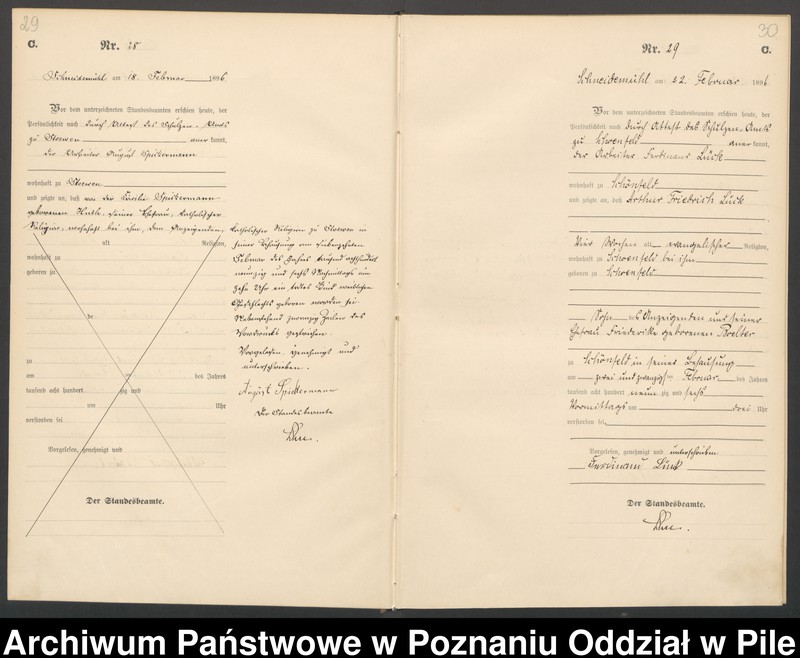 29
C.
Nr. 28
Schneidemühl am 18. Februar 1896
Vor dem unterzeichneten Standesbeamten erschien heute, der
Persönlichkeit nach durch Attest des Schulzen-Amts
zu Stoewen anerkannt,
der Arbeiter August Spickermann
wohnhaft zu Stoewen
und zeigte an, daß von der Cäcilie Spickermann
geborenen, seiner Ehefrau, katholischer
Religion, wohnhaft bei ihm, dem Anzeigenden,
alt Religion,
wohnhaft zu
geboren zu
de
zu
am des Jahres
tausend acht hundert zig und
um Uhr
verstorben sei
Vorgelesen, genehmigt und
Der Standesbeamte.
katholischer Religion zu Stoewen in
seiner Behausung am siebenzehnten
Februar des Jahres tausend achthundert
neunzig und sechs Nachmittags um
zehn Uhr ein todtes Kind weiblichen
Geschlechts geboren worden sei.
Nebenstehend zwanzig Zeilen des
Vordrucks gestrichen.
Vorgelesen, genehmigt und
unterschrieben.
August Spickermann
Der Standesbeamte
30
Nr. 29
C.
Schneidemühl am 22. Februar 1896
Vor dem unterzeichneten Standesbeamten erschien heute, der
Persönlichkeit nach durch Attest des Schulzen-Amts
zu Schoenfeld anerkannt,
der Arbeiter Ferdinand Lück
wohnhaft zu Schönfeld
und zeigte an, daß Arthur Friedrich Lück
Vier Wochen alt evangelischer Religion,
wohnhaft zu Schoenfeld bei ihm
geboren zu Schoenfeld
Sohn des Anzeigenden und seiner
Ehefrau Friederike geborenen
zu Schönfeld in seiner Behausung
am zwei und zwanzigsten Februar des Jahres
tausend acht hundert neunzig und sechs
Vormittags um drei Uhr
verstorben sei
Vorgelesen, genehmigt und unterschrieben
Ferdinand Lück
Der Standesbeamte.
Archiwum Państwowe w Poznaniu Oddział w Pile